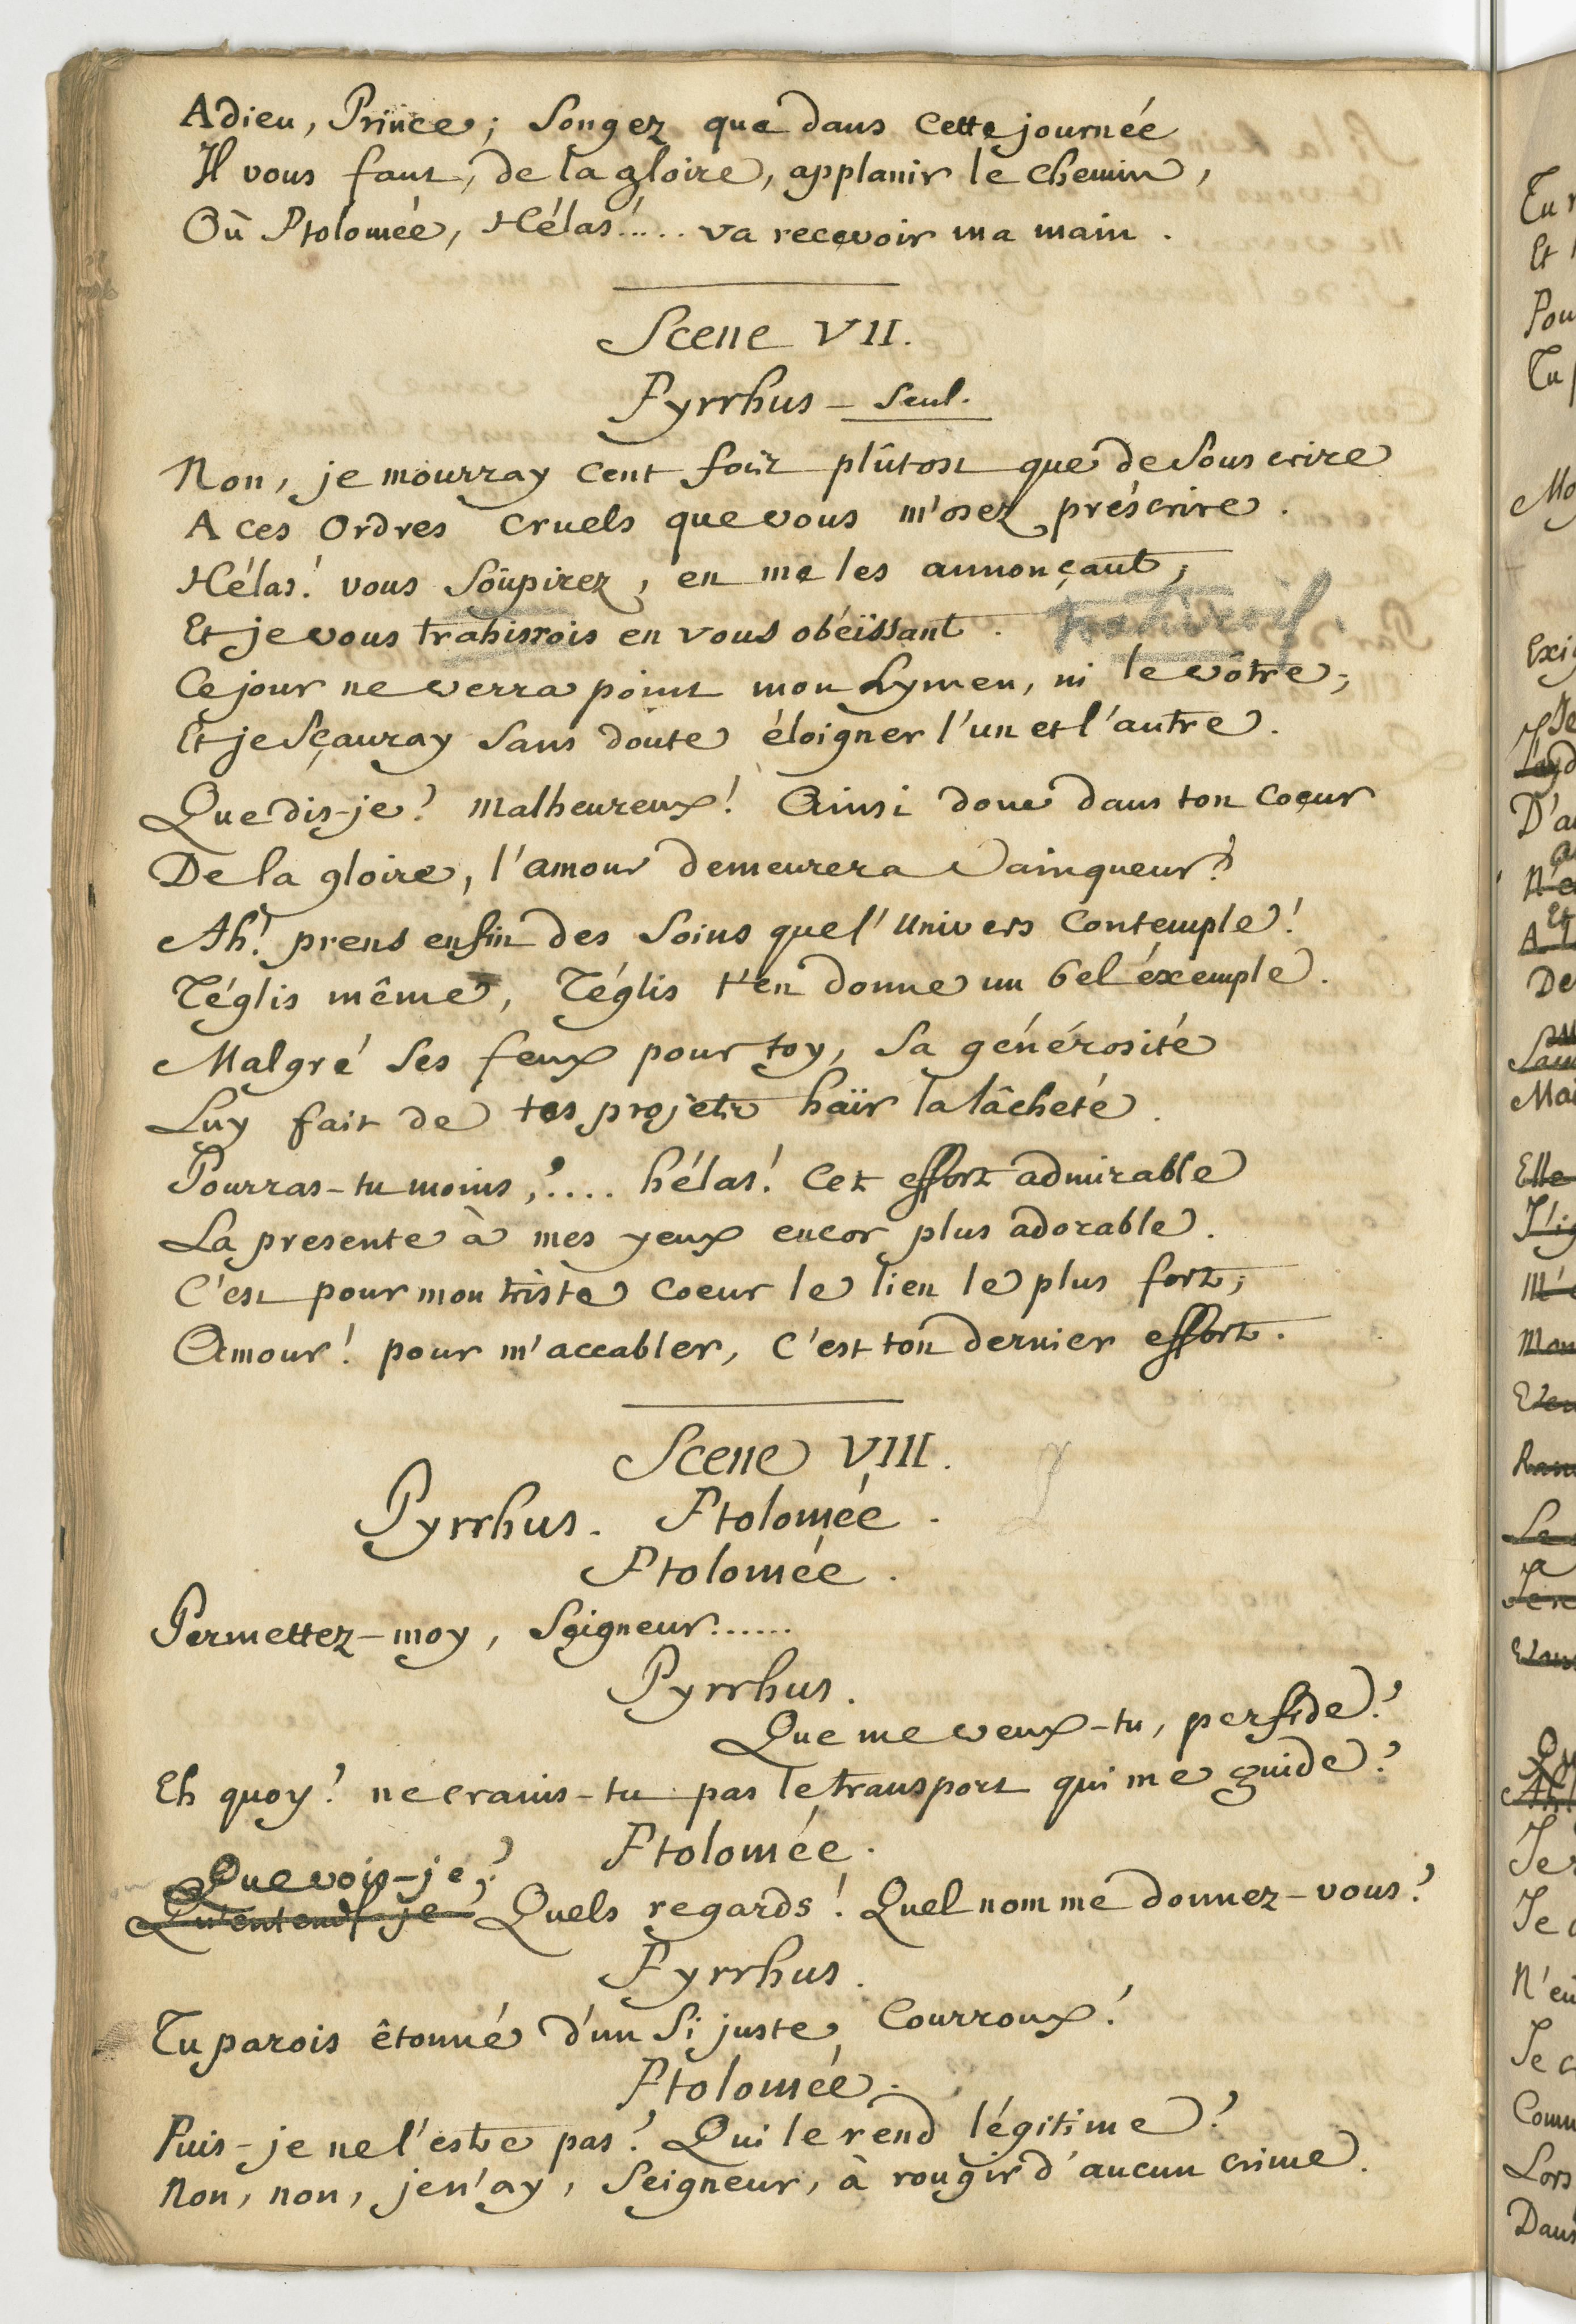 Adieu, Prince; Songez que dans cette journée
Il vous faut, de la gloire, applanir le chemin,
Où Ptolomée, Hélas!.... va recevoir ma main.
Scene VII.
Pyrrhus - Seul.
Non, je mourray cent fois plûtost que de Souscrire
A ces Ordres cruels que vous m'osez préscrire.
Hélas! vous Soûpirez, en me les annonçant;
Et je vous trahirois en vous obéïssant. trahirois
Ce jour ne verra point mon hymen, ni le vôtre;
Et je Sçauray Sans doute éloigner l'un et l'autre.
Que dis-je? malheureux! Ainsi donc dans ton coeur
De la gloire, l'amour demeurera Vainqueur?
Ah! prens enfin des Soins que l'Univers Contemple!
Téglis même, Téglis t'en donne un bel éxemple.
Malgré Ses feux pour toy, Sa générosité
Luy fait de tes projets haïr la lâcheté.
Pourras-tu moins,?.... hélas! Cet effort admirable
La presente à mes yeux encor plus adorable.
C'est pour mon triste coeur le lien le plus fort;
Amour! pour m'accabler, c'est ton dernier effort.
Scene VIII.
Pyrrhus. Ptolomée.
Ptolomée.
Permettez-moy, Seigneur......
Pyrrhus.
Que me veux-tu, perfide?
Eh quoy? ne crains-tu pas le transport qui me guide?
Ptolomée.
Que vois-je?
Qu'entends je? Quels regards! Quel nom me donnez-vous?
Pyrrhus.
Tu parois étonné d'un Si juste Courroux!
Ptolomée.
Puis-je ne l'estre pas? Qui le rend légitime?
Non, non, je n'ay, Seigneur, à rougir d'aucun crime.